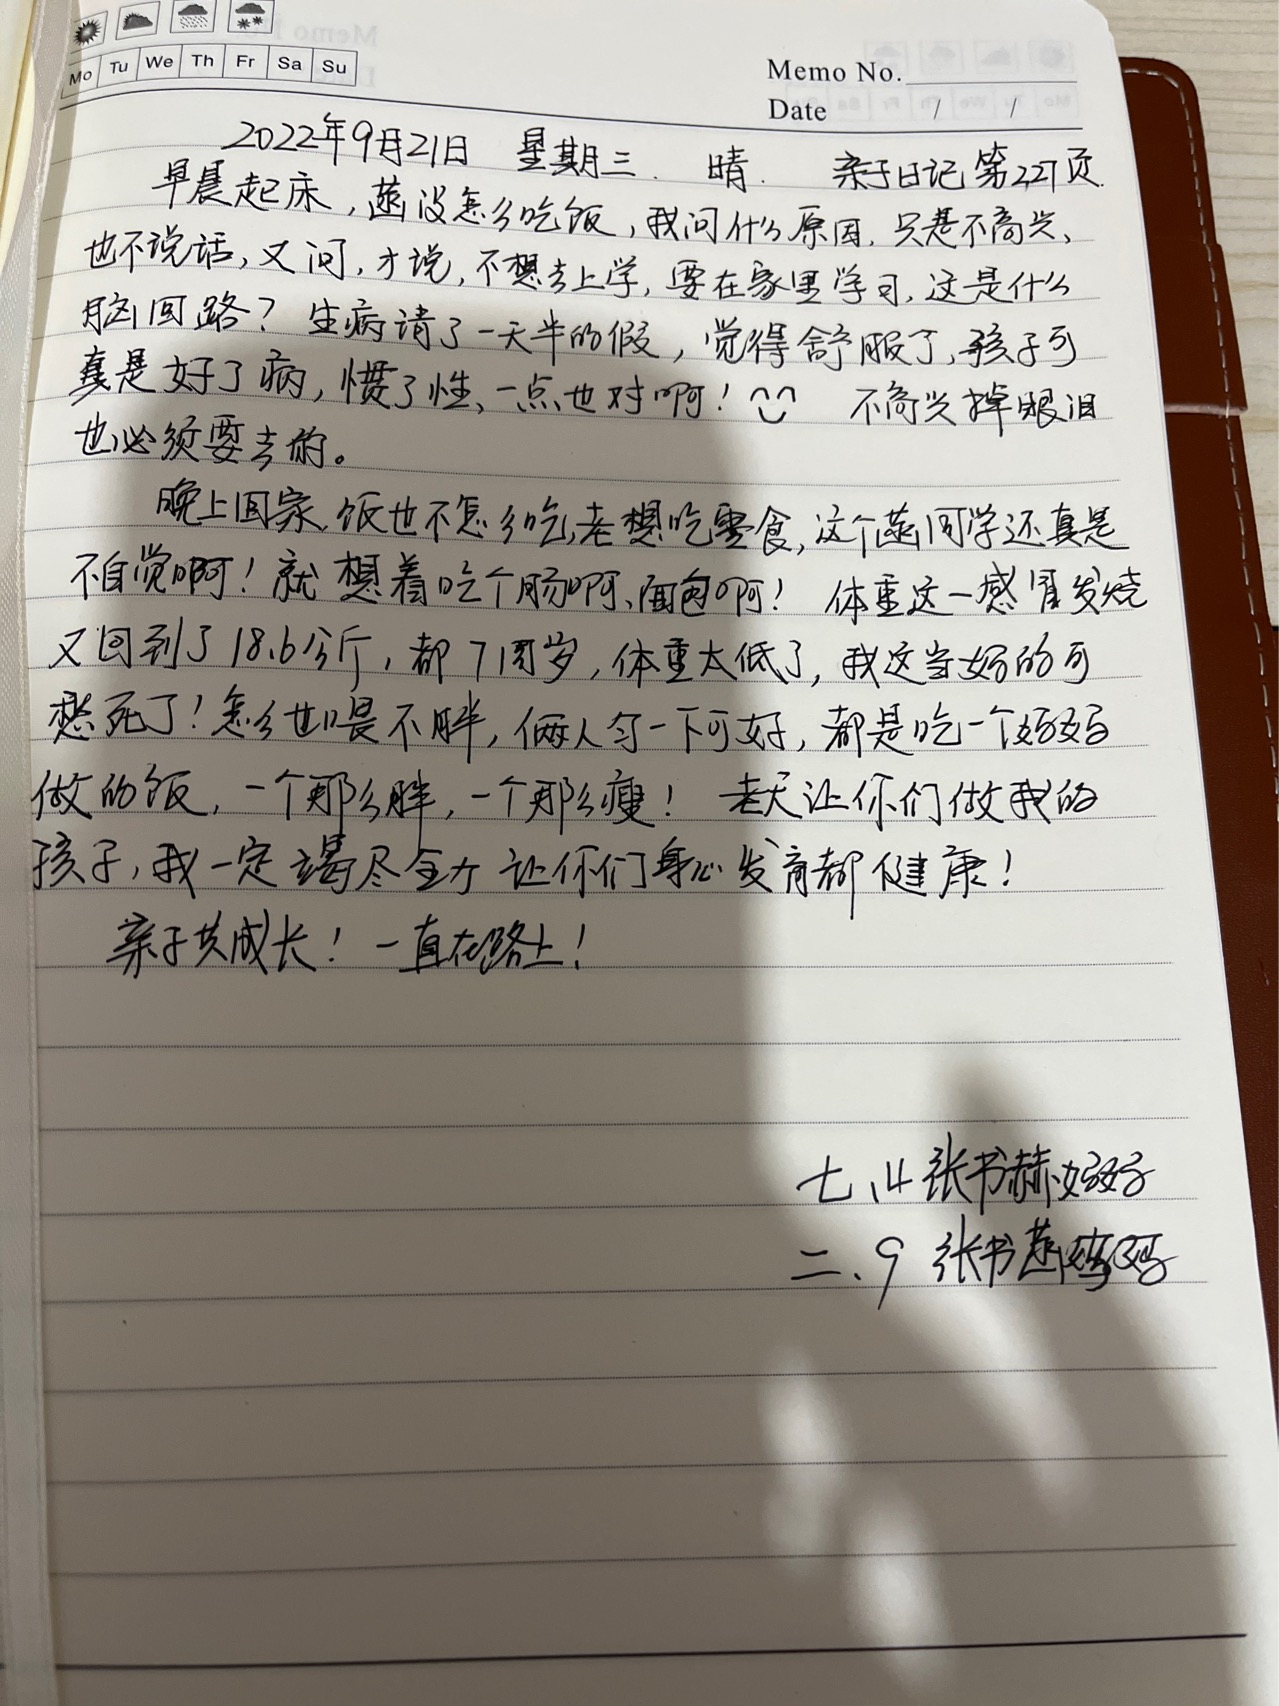 Mo Tu We Th Fr Sa Su
Memo No.
Date / /
2022年9月21日 星期三. 晴. 亲子日记第227页.
早晨起床,菡没怎么吃饭,我问什么原因,只是不高兴、
也不说话,又问,才说,不想去上学,要在家里学习,这是什么
脑回路?生病请了一天半的假,觉得舒服了,孩子可
真是好了病,惯了性、一点也对啊! 不高兴掉眼泪
也必须要去的。
晚上回家,饭也不怎么吃,老想吃零食,这个菡同学还真是
不自觉啊!就想着吃个肠啊、面包啊! 体重这一感冒发烧
又回到了18.6公斤,都7周岁,体重太低了,我这当妈的可
愁死了!怎么也喂不胖,俩人匀一下可好,都是吃一个妈妈
做的饭,一个那么胖,一个那么瘦! 老天让你们做我的
孩子,我一定竭尽全力让你们身心发育都健康!
亲子共成长!一直在路上!
七、14 张书赫妈妈
二、9 张书菡妈妈